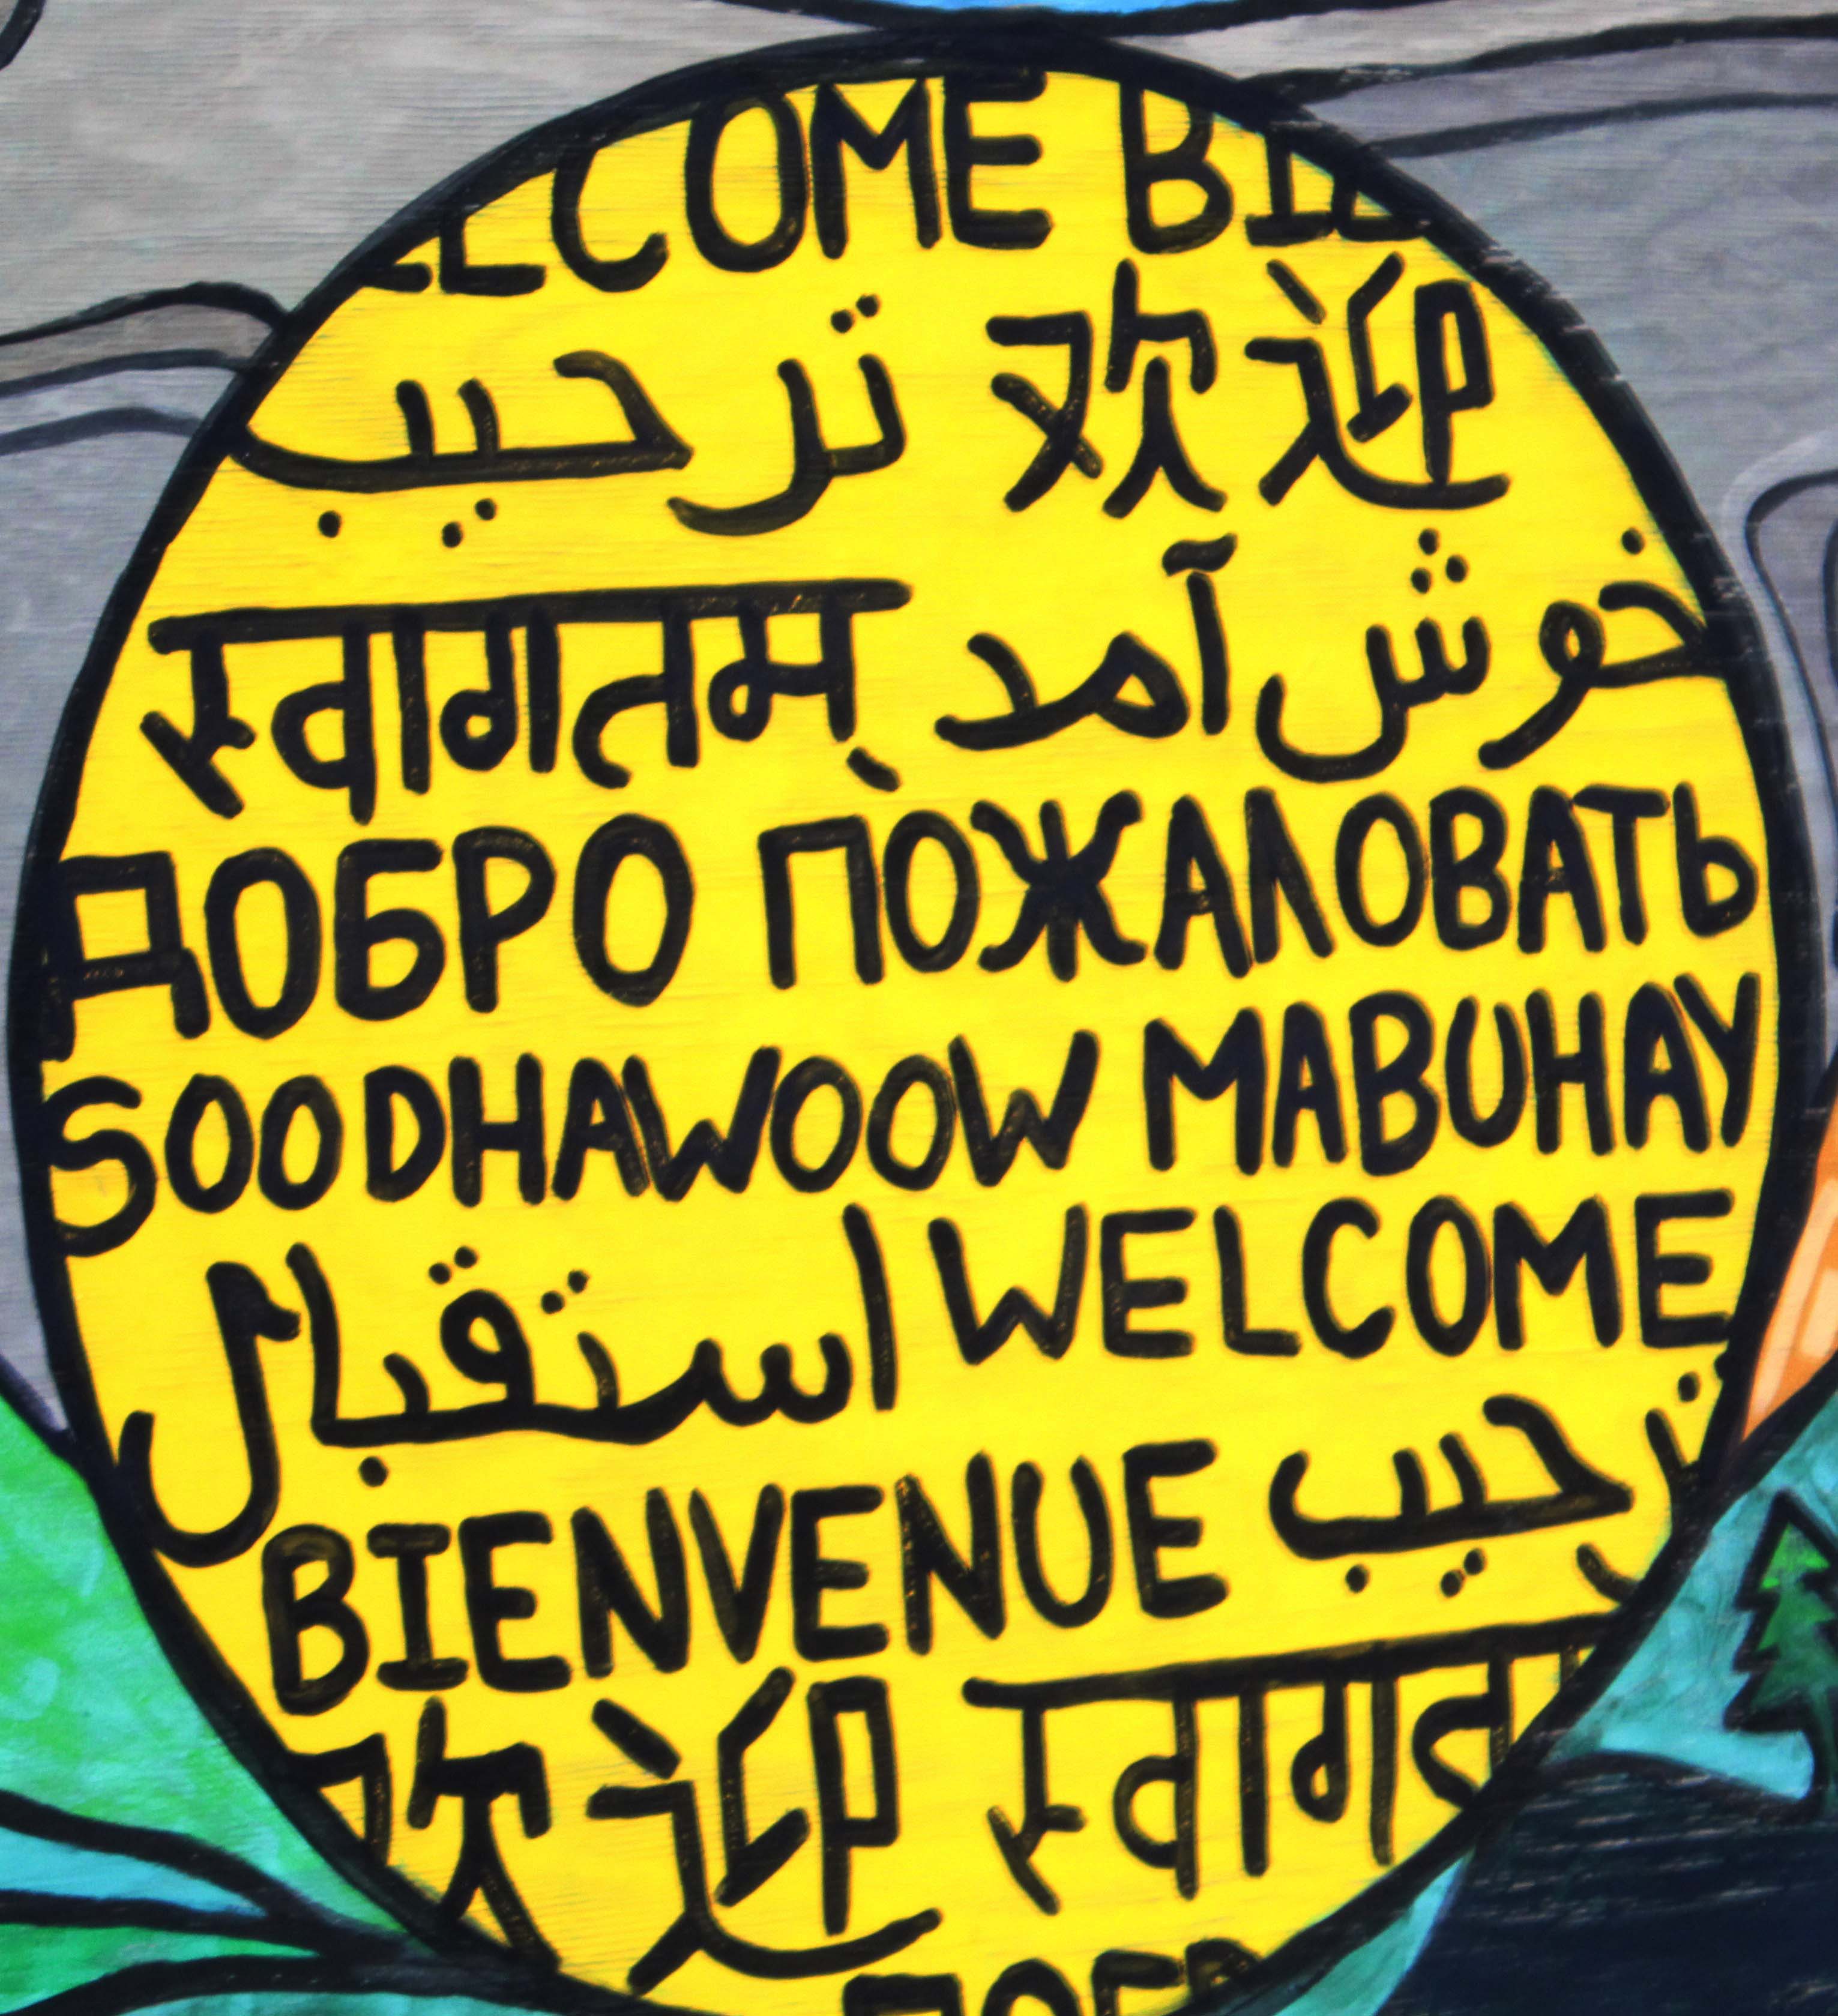 WELCOME BIE
ترحيب 欢迎
स्वागतम् خوش آمد
ДОБРО ПОЖАЛОВАТЬ
SOO DHAWOOW MABUHAY
استقبال WELCOME
BIENVENUE ترحيب
欢迎 स्वागत